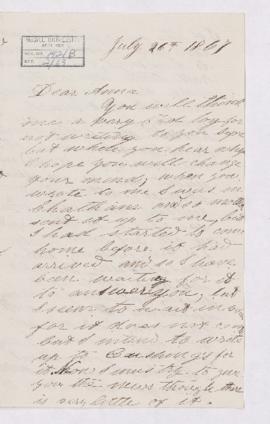 July 26th 1867
Dear Anna
You will think
me a very bad boy for
not writing to you before
but when you hear why
I hope you will change
your mind, when you
wrote to me I was in
sent it up to me, but
I had started to come
home before it had
arrived and so I have
been waiting for it
to answer you, but
I seem to wait in vain
for it does not come
but I intend to write
up to for
it. Now I must try to give
you the news though there
is very little of it.